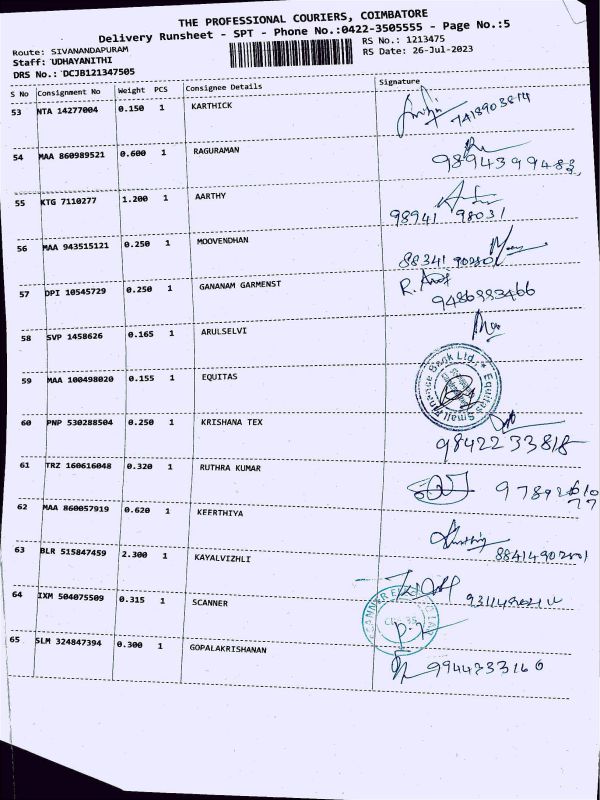 THE PROFESSIONAL COURIERS, COIMBATORE
Delivery Runsheet - SPT - Phone No.:0422-3505555 - Page No.:5
Route: SIVANANDAPURAM
RS No.: 1213475
Staff: UDHAYANITHI
RS Date: 26-Jul-2023
DRS No.: DCJB121347505
S No Consignment No Weight PCS Consignee Details Signature
53 NTA 14277004 0.150 1 KARTHICK 7418903814
54 MAA 860989521 0.600 1 RAGURAMAN
55 KTG 7110277 1.200 1 AARTHY 98941 98031
56 MAA 943515121 0.250 1 MOOVENDHAN
57 DPI 10545729 0.250 1 GANANAM GARMENST
58 SVP 1458626 0.165 1 ARULSELVI
59 MAA 100498020 0.155 1 EQUITAS Equitas Small Finance Bank Ltd.
60 PNP 530288504 0.250 1 KRISHANA TEX 9842233818
61 TRZ 160616048 0.320 1 RUTHRA KUMAR
62 MAA 860057919 0.620 1 KEERTHIYA
63 BLR 515847459 2.300 1 KAYALVIZHLI
64 IXM 504075509 0.315 1 SCANNER
65 SLM 324847394 0.300 1 GOPALAKRISHANAN 9944333160